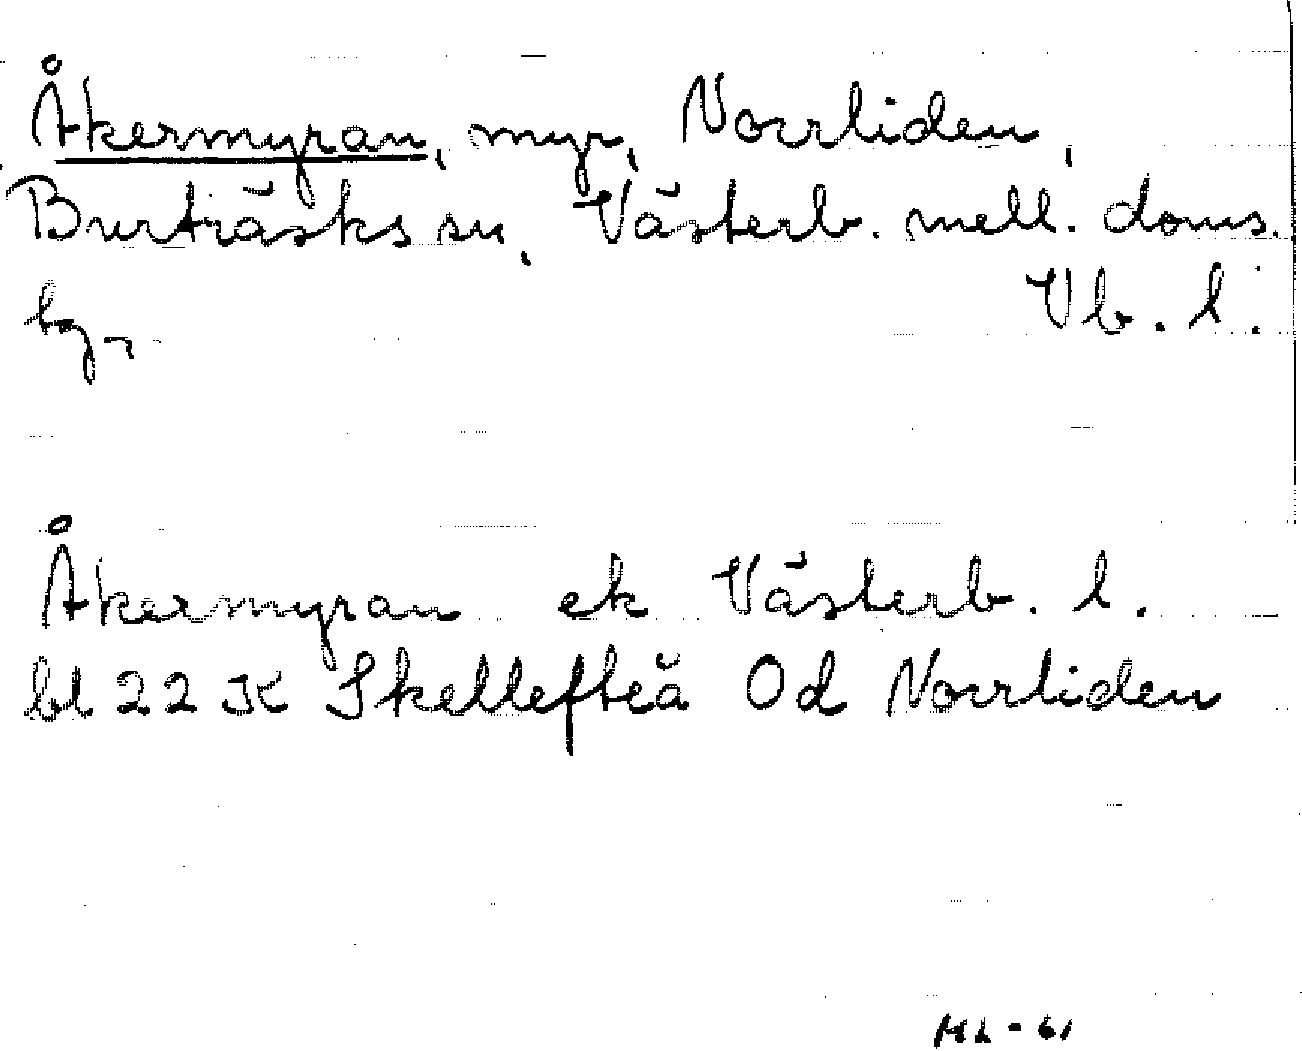 Åkermyran, myr, Norrliden,
Burträsks sn, Västerb. mell. doms.
bg,
Vb. l.
Åkermyran ek Västerb. l.
bl 22 K Skellefteå Od Norrliden
ML - 61